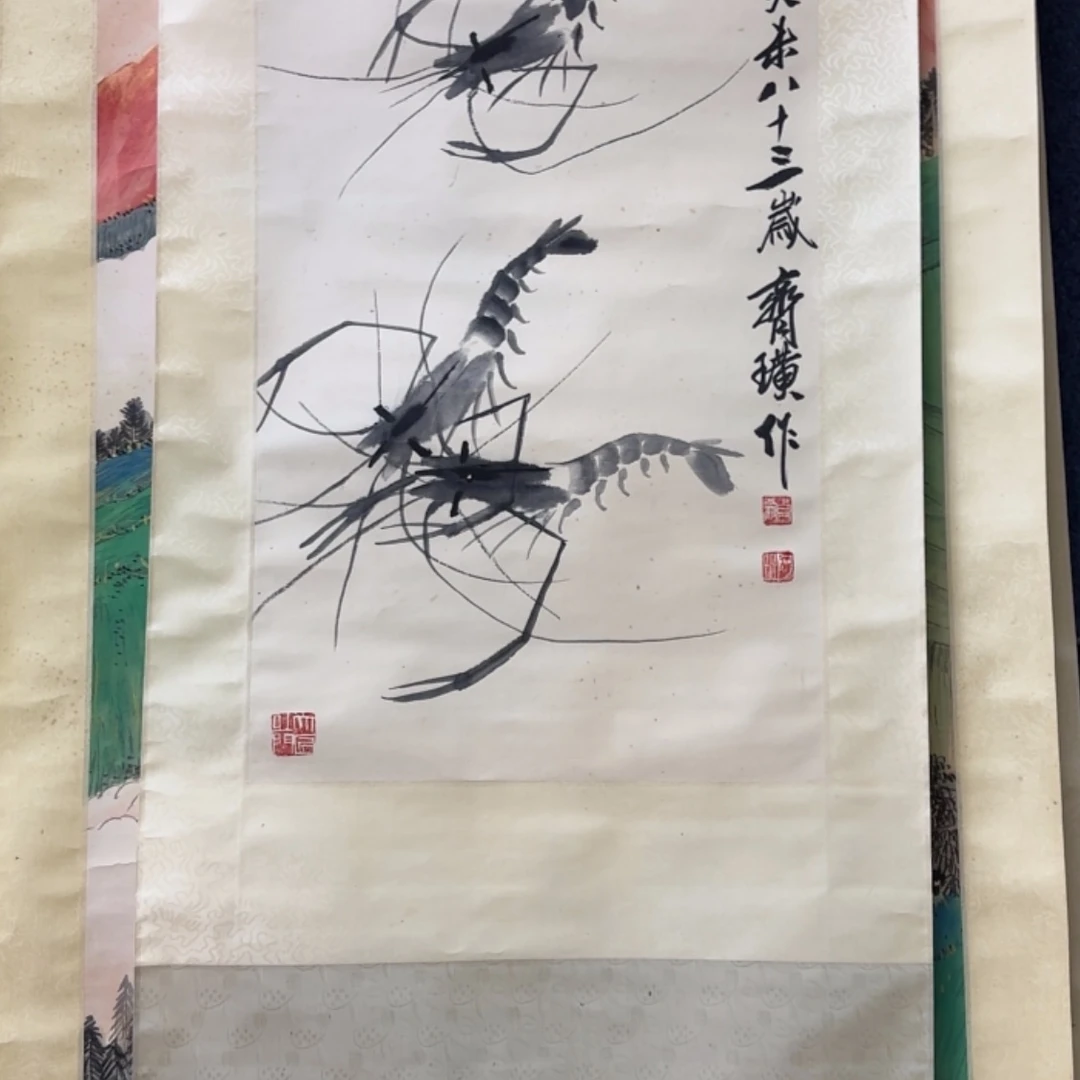 未八十三歲齊璜作